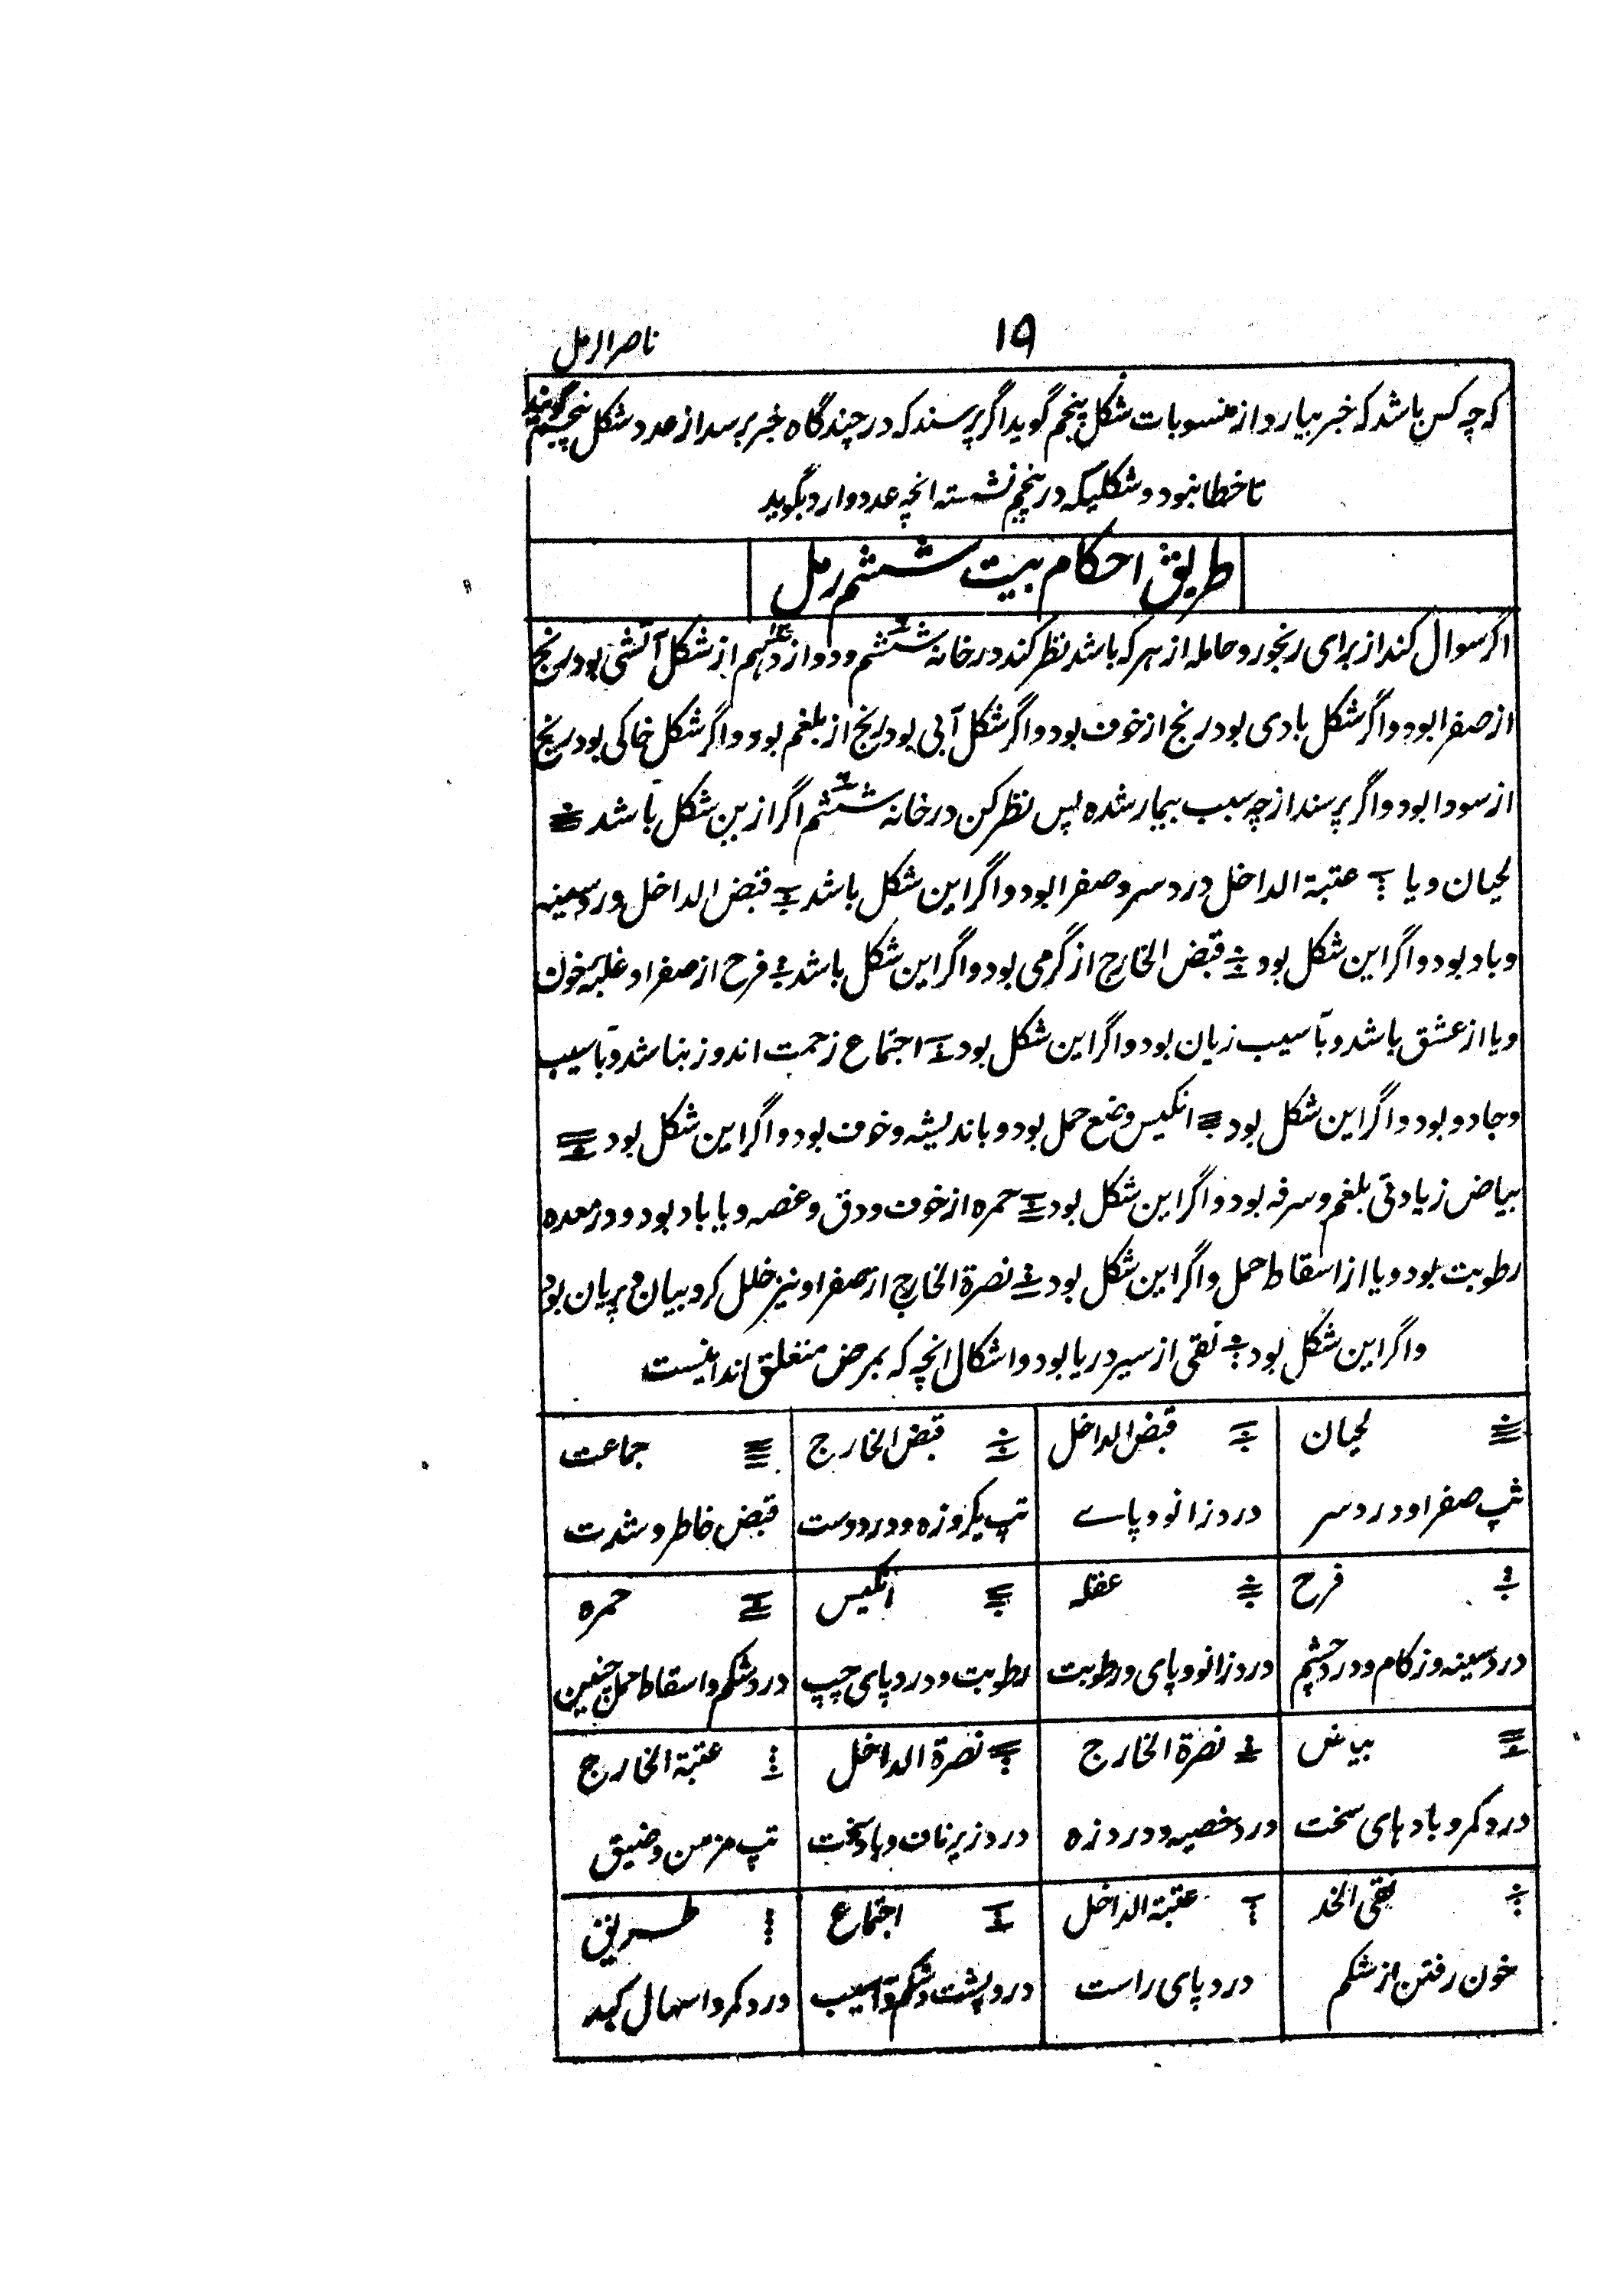 ناصر الرمل
۱۹
که چه کس باشد که خبر بیارد از منسوبات شکل پنجم گوید اگر پرسند که در چندگاه خبر برسد از عدد شکل پنجم گویند
تا خطا نبود و شکلیکه در پنجم نشسته انچه عدد دارد بگوید
طریق احکام بیت ششم رمل
اگر سوال کند از برای رنجور و حامله از هر که باشد نظر کند در خانه ششم و دوازدهم از شکل آتشی بود رنج
از صفرا بود و اگر شکل بادی بود رنج از خوف بود و اگر شکل آبی بود رنج از بلغم بود و اگر شکل خاکی بود رنج
از سودا بود و اگر پرسند از چه سبب بیمار شده پس نظر کن در خانه ششم اگر ازین شکل باشد
لحیان و یا عتبة الداخل درد سر و صفرا بود و اگر این شکل باشد قبض الداخل درد سینه
و باد بود و اگر این شکل بود قبض الخارج از گرمی بود و اگر این شکل باشد فرح از صفرا و غلبه خون
و یا از عشق باشد و بآسیب زیان بود و اگر این شکل بود اجتماع زحمت اندوز بنا شد و بآسیب
و جادو بود و اگر این شکل بود انکیس وضع حمل بود و باندیشه و خوف بود و اگر این شکل بود
بیاض زیادتی بلغم و سرفه بود و اگر این شکل بود حمره از خوف و دق و غصه و یا باد بود و در معده
رطوبت بود و یا از اسقاط حمل و اگر این شکل بود نصرة الخارج از صفرا و نیز خلل کروبیان و پریان بود
و اگر این شکل بود نقی از سیر دریا بود و اشکال انچه که بمرض متعلق اند اینست
لحیان قبض الداخل قبض الخارج جماعت
تپ صفرا و درد سر درد زانو و پاے تپ یکروزه و درد دست قبض خاطر و شدت
فرح عقله انکیس حمره
درد سینه و زکام و درد چشم درد زانو و پای و رطوبت رطوبت و درد پای چپ درد شکم و اسقاط حمل جنین
بیاض نصرة الخارج نصرة الداخل عتبة الخارج
درد کمر و بادهای سخت درد خصیه و درد زه درد زیر ناف و باد سخت تپ مزمن و ضیق
نقی الخد عتبة الداخل اجتماع طریق
خون رفتن از شکم درد پای راست درد پشت و شکم و آسیب درد کمر و اسهال کبد